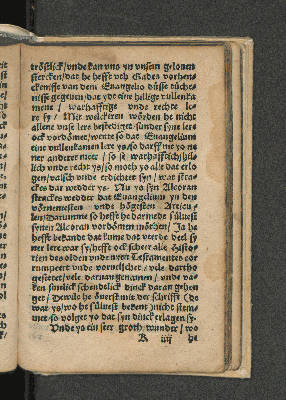 tröstlick/vnde kan vns yn vnsem gelouen
stercken/dat he hefft vth Gades vorhenc
ckenisse van dem Euangelio düsse tüche-
nisse gegeuen dat yde eine hillige vullenka
mene / warhafftige vnde rechte lo-
re sy / Mit welckeren wörden he nicht
allene vnse lere bestediget sünder syne lere
ock vordömet/wente so dat Euangelium
eine vullenkamen lere ys/so darff me yo ne
ner anderer meer / so se warhafftich/hil-
lich vnde recht ys/so moth yo alle dat erlo
gen/valsch vnde erdichtet syn/ wat stra-
ckes dar wedder ys. Nu ys syn Alcoran
strackes wedder dat Euangelium yn den
vörnemesten vnde högesten Articu-
len/Darumme so hefft he darmede sülvest
synen Alcoran vordömen möthen / Ja he
hefft bekandt dat kume dat veerde deel sy-
ner lere war sy/hefft ock scheer alle Histo-
rien des olden vnde nyen Testamentes cor
rumpert vnde voruelschet / vele dartho
gesettet/vele daruan genamen / vnde va-
ken sinnlick schendelick dinck daran gehen
get / Dewile he öuerst mit der schrifft (de
war ys/wo he sülvest bekent) nicht stem-
met/so volget yo dat syn dinck erlagen sy.
Vnde ys ein seer groth wunder / wo
K iiij he